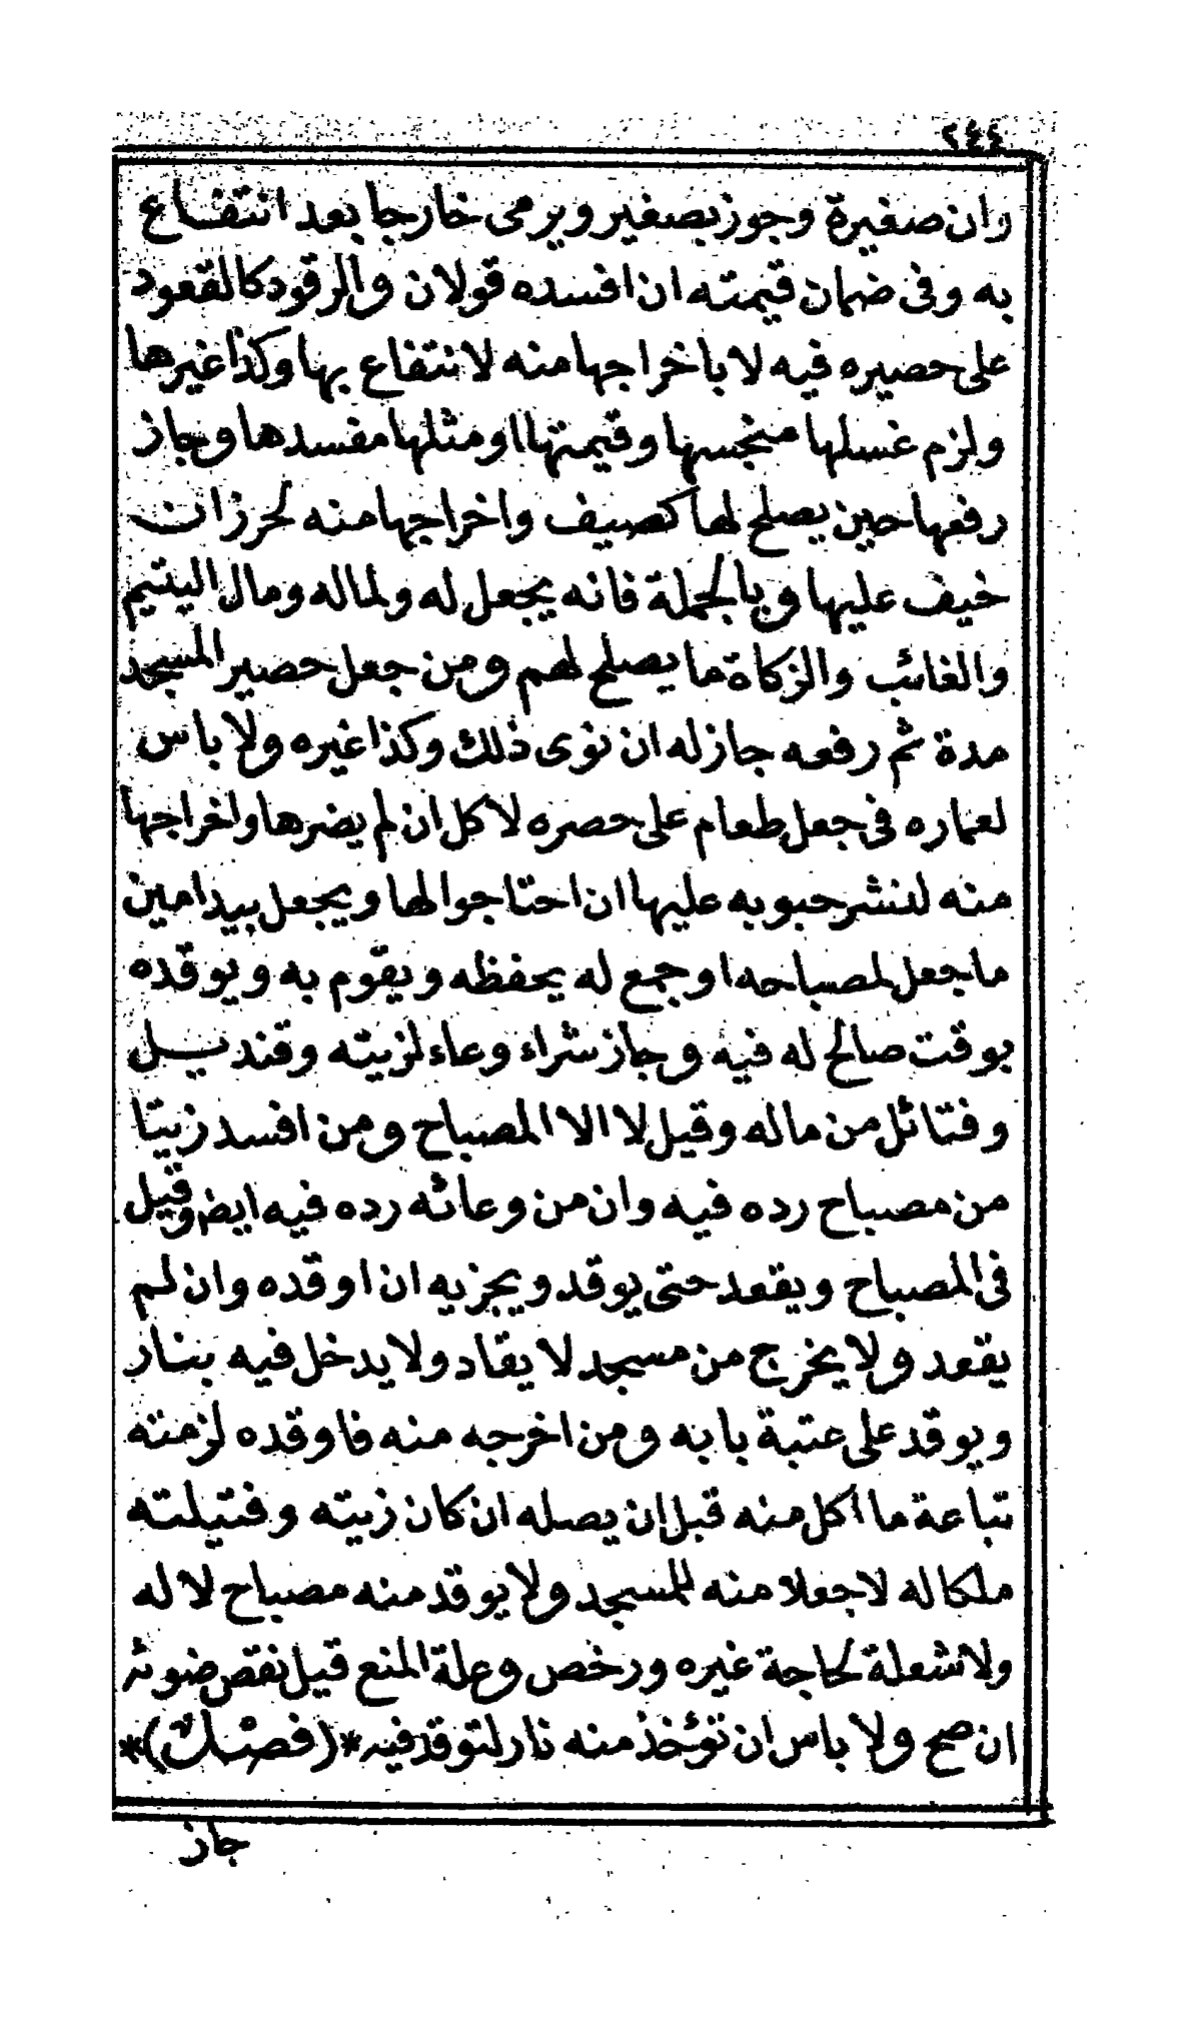 ٢٤٤
وان صغيرة وجوز بصغير ويرمى خارجا بعد انتفاع
به وفى ضمان قيمته ان افسده قولان والرقود كالقعود
على حصيره فيه لا باخراجها منه لانتفاع بها وكذا غيرها
ولزم غسلها منجسها وقيمتها او مثلها مفسدها وجاز
رفعها حين يصلح لها كصيف واخراجها منه لحرز ان
خيف عليها وبالجملة فانه يجعل له ولماله ومال اليتيم
والغائب والزكاة ما يصلح لهم ومن جعل حصير المسجد
مدة ثم رفعه جاز له ان نوى ذلك وكذا غيره ولا باس
لعماره فى جعل طعام على حصره لاكل ان لم يضرها واخراجها
منه لنشر حبوبه عليها ان احتاجوا لها ويجعل بيد امين
ما جعل لمصباحه او جمع له يحفظه ويقوم به ويوقده
بوقت صالح له فيه وجاز شراء وعاء لزيته وقنديل
وفتائل من ماله وقيل لا الا المصباح ومن افسد زيتا
من مصباح رده فيه وان من وعائه رده فيه ايض وقيل
فى المصباح ويقعد حتى يوقد ويجزيه ان اوقده وان لم
يقعد ولا يخرج من مسجد لا يقاد ولا يدخل فيه بنار
ويوقد على عتبة بابه ومن اخرجه منه فاوقده لزمته
تباعة ما اكل منه قبل ان يصله ان كان زيته وفتيلته
ملكا له لا جعلا منه للمسجد ولا يوقد منه مصباح لا له
ولا شعلة لحاجة غيره ورخص وعلة المنع قيل نقص ضوئه
ان صح ولا باس ان تؤخذ منه نار لتوقد فيه *(فصل)*
جاز